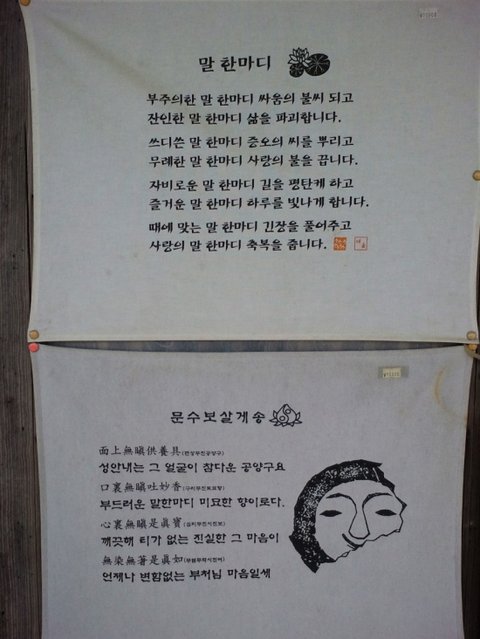 말 한마디
부주의한 말 한마디 싸움의 불씨 되고
잔인한 말 한마디 삶을 파괴합니다.
쓰디쓴 말 한마디 증오의 씨를 뿌리고
무례한 말 한마디 사랑의 불을 끕니다.
자비로운 말 한마디 길을 평탄케 하고
즐거운 말 한마디 하루를 빛나게 합니다.
때에 맞는 말 한마디 긴장을 풀어주고
사랑의 말 한마디 축복을 줍니다.
문수보살게송
面上無瞋供養具(면상무진공양구)
성안내는 그 얼굴이 참다운 공양구요
口裏無瞋吐妙香(구리무진토묘향)
부드러운 말한마디 미묘한 향이로다.
心裏無瞋是眞寶(심리무진시진보)
깨끗해 티가 없는 진실한 그 마음이
無染無著是眞如
언제나 변함없는 부처님 마음일세